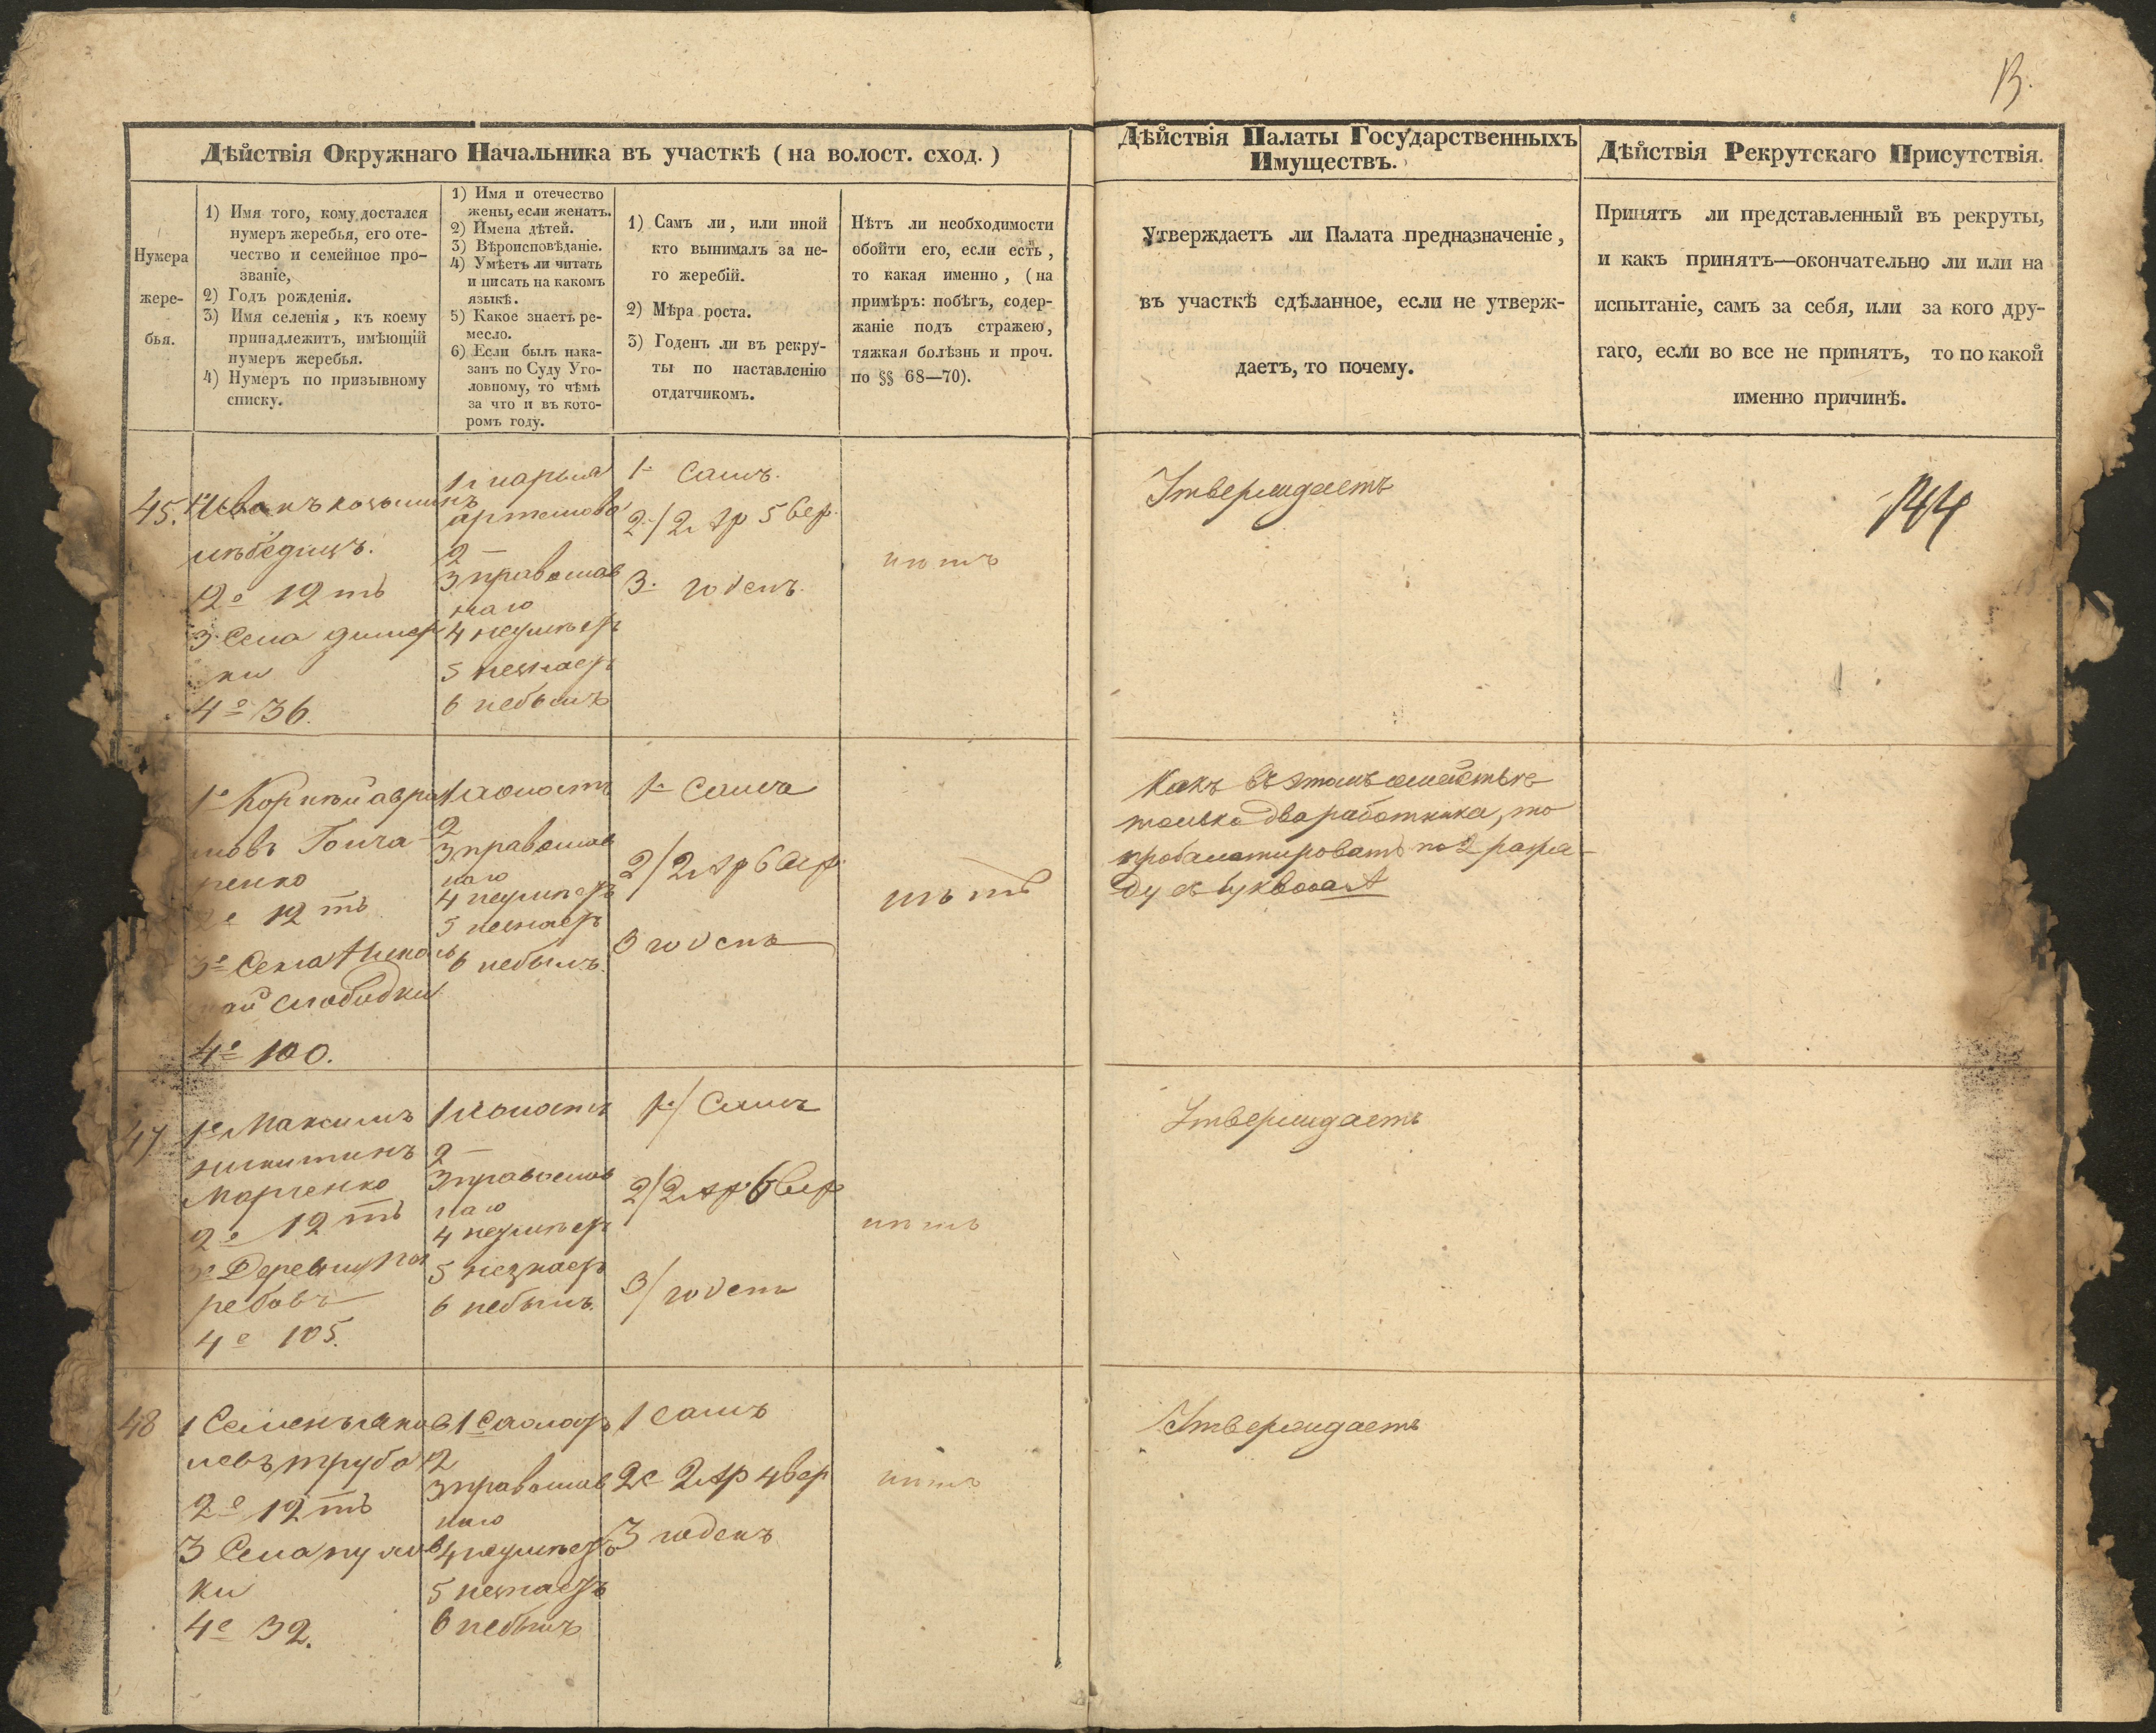 Дѣйствія Окружнаго Начальника въ участкѣ (на волост. сход.)
Нумера
жере-
бья.
1) Имя того, кому достался
нумеръ жеребья, его оте-
чество и семейное про-
званіе,
2) Годъ рожденія.
3) Имя селенія, къ коему
принадлежитъ, имѣющій
нумеръ жеребья.
4) Нумеръ по призывному
списку.
1) Имя и отечество
жены, если женатъ.
2) Имена дѣтей.
3) Вѣроисповѣданіе.
4) Умѣетъ ли читать
и писать на какомъ
языкѣ.
5) Какое знаетъ ре-
месло.
6) Если былъ нака-
занъ по Суду Уго-
ловному, то чѣмъ
за что и въ кото-
ромъ году.
1) Самъ ли, или иной
кто вынималъ за не-
го жеребій.
2) Мѣра роста.
3) Годенъ ли въ рекру-
ты по наставленію
отдатчикомъ.
Нѣтъ ли необходимости
обойти его, если есть,
то какая именно, (на
примѣръ: побѣгъ, содер-
жаніе подъ стражею,
тяжкая болѣзнь и проч.
по §§ 68—70).
Дѣйствія Палаты Государственныхъ
Имуществъ.
Утверждаетъ ли Палата предназначеніе,
въ участкѣ сдѣланное, если не утверж-
даетъ, то почему.
Дѣйствія Рекрутскаго Присутствія.
Принятъ ли представленный въ рекруты,
и какъ принятъ—окончательно ли или на
испытаніе, самъ за себя, или за кого дру-
гаго, если во все не принятъ, то по какой
именно причинѣ.
45.
1е Иванъ козьминъ
лѣбедицъ.
2е 12 тъ
3 Села димер
ки
4е 36.
1 марья
артемова
2 —
3 православ
наго
4 неумѣетъ
5 незнаетъ
6 небылъ
1 Самъ.
2/ 2 ар 5 вер.
3. годенъ.
нѣтъ
Утверждаетъ
144
1е Корнѣй авра
мовъ Гонча
ренко
2е 12 тъ
3е Села
слободки
4е 100.
1 холостъ
2
3 православ
наго
4 неумѣетъ
5 незнаетъ
6 небылъ.
1 Самъ
2/ 2 ар 6 вер.
3 годенъ
нѣтъ
Какъ въ этомъ семействѣ
только два работника, то
пробалотировать по 2 разря-
ду съ буквою А
47
1е Максимъ
никитинъ
Марченко
2е 12 тъ
3е Деревни По
ребовъ
4е 105.
1 холостъ
2 —
3 православ
наго
4 неумѣетъ
5 незнаетъ
6 небылъ.
1/ Самъ
2/ 2 ар 6 вер
3/ годенъ
нѣтъ
Утверждаетъ
48
1 Семенъ яков
левъ труба
2е 12 тъ
3 Села пухов
ки
4е 32.
1е холостъ
2
3 православ
наго
4 неумѣетъ
5 незнаетъ
6 небылъ
1 самъ
2е 2 ар 4 вер
3 годенъ
нѣтъ
Утверждаетъ